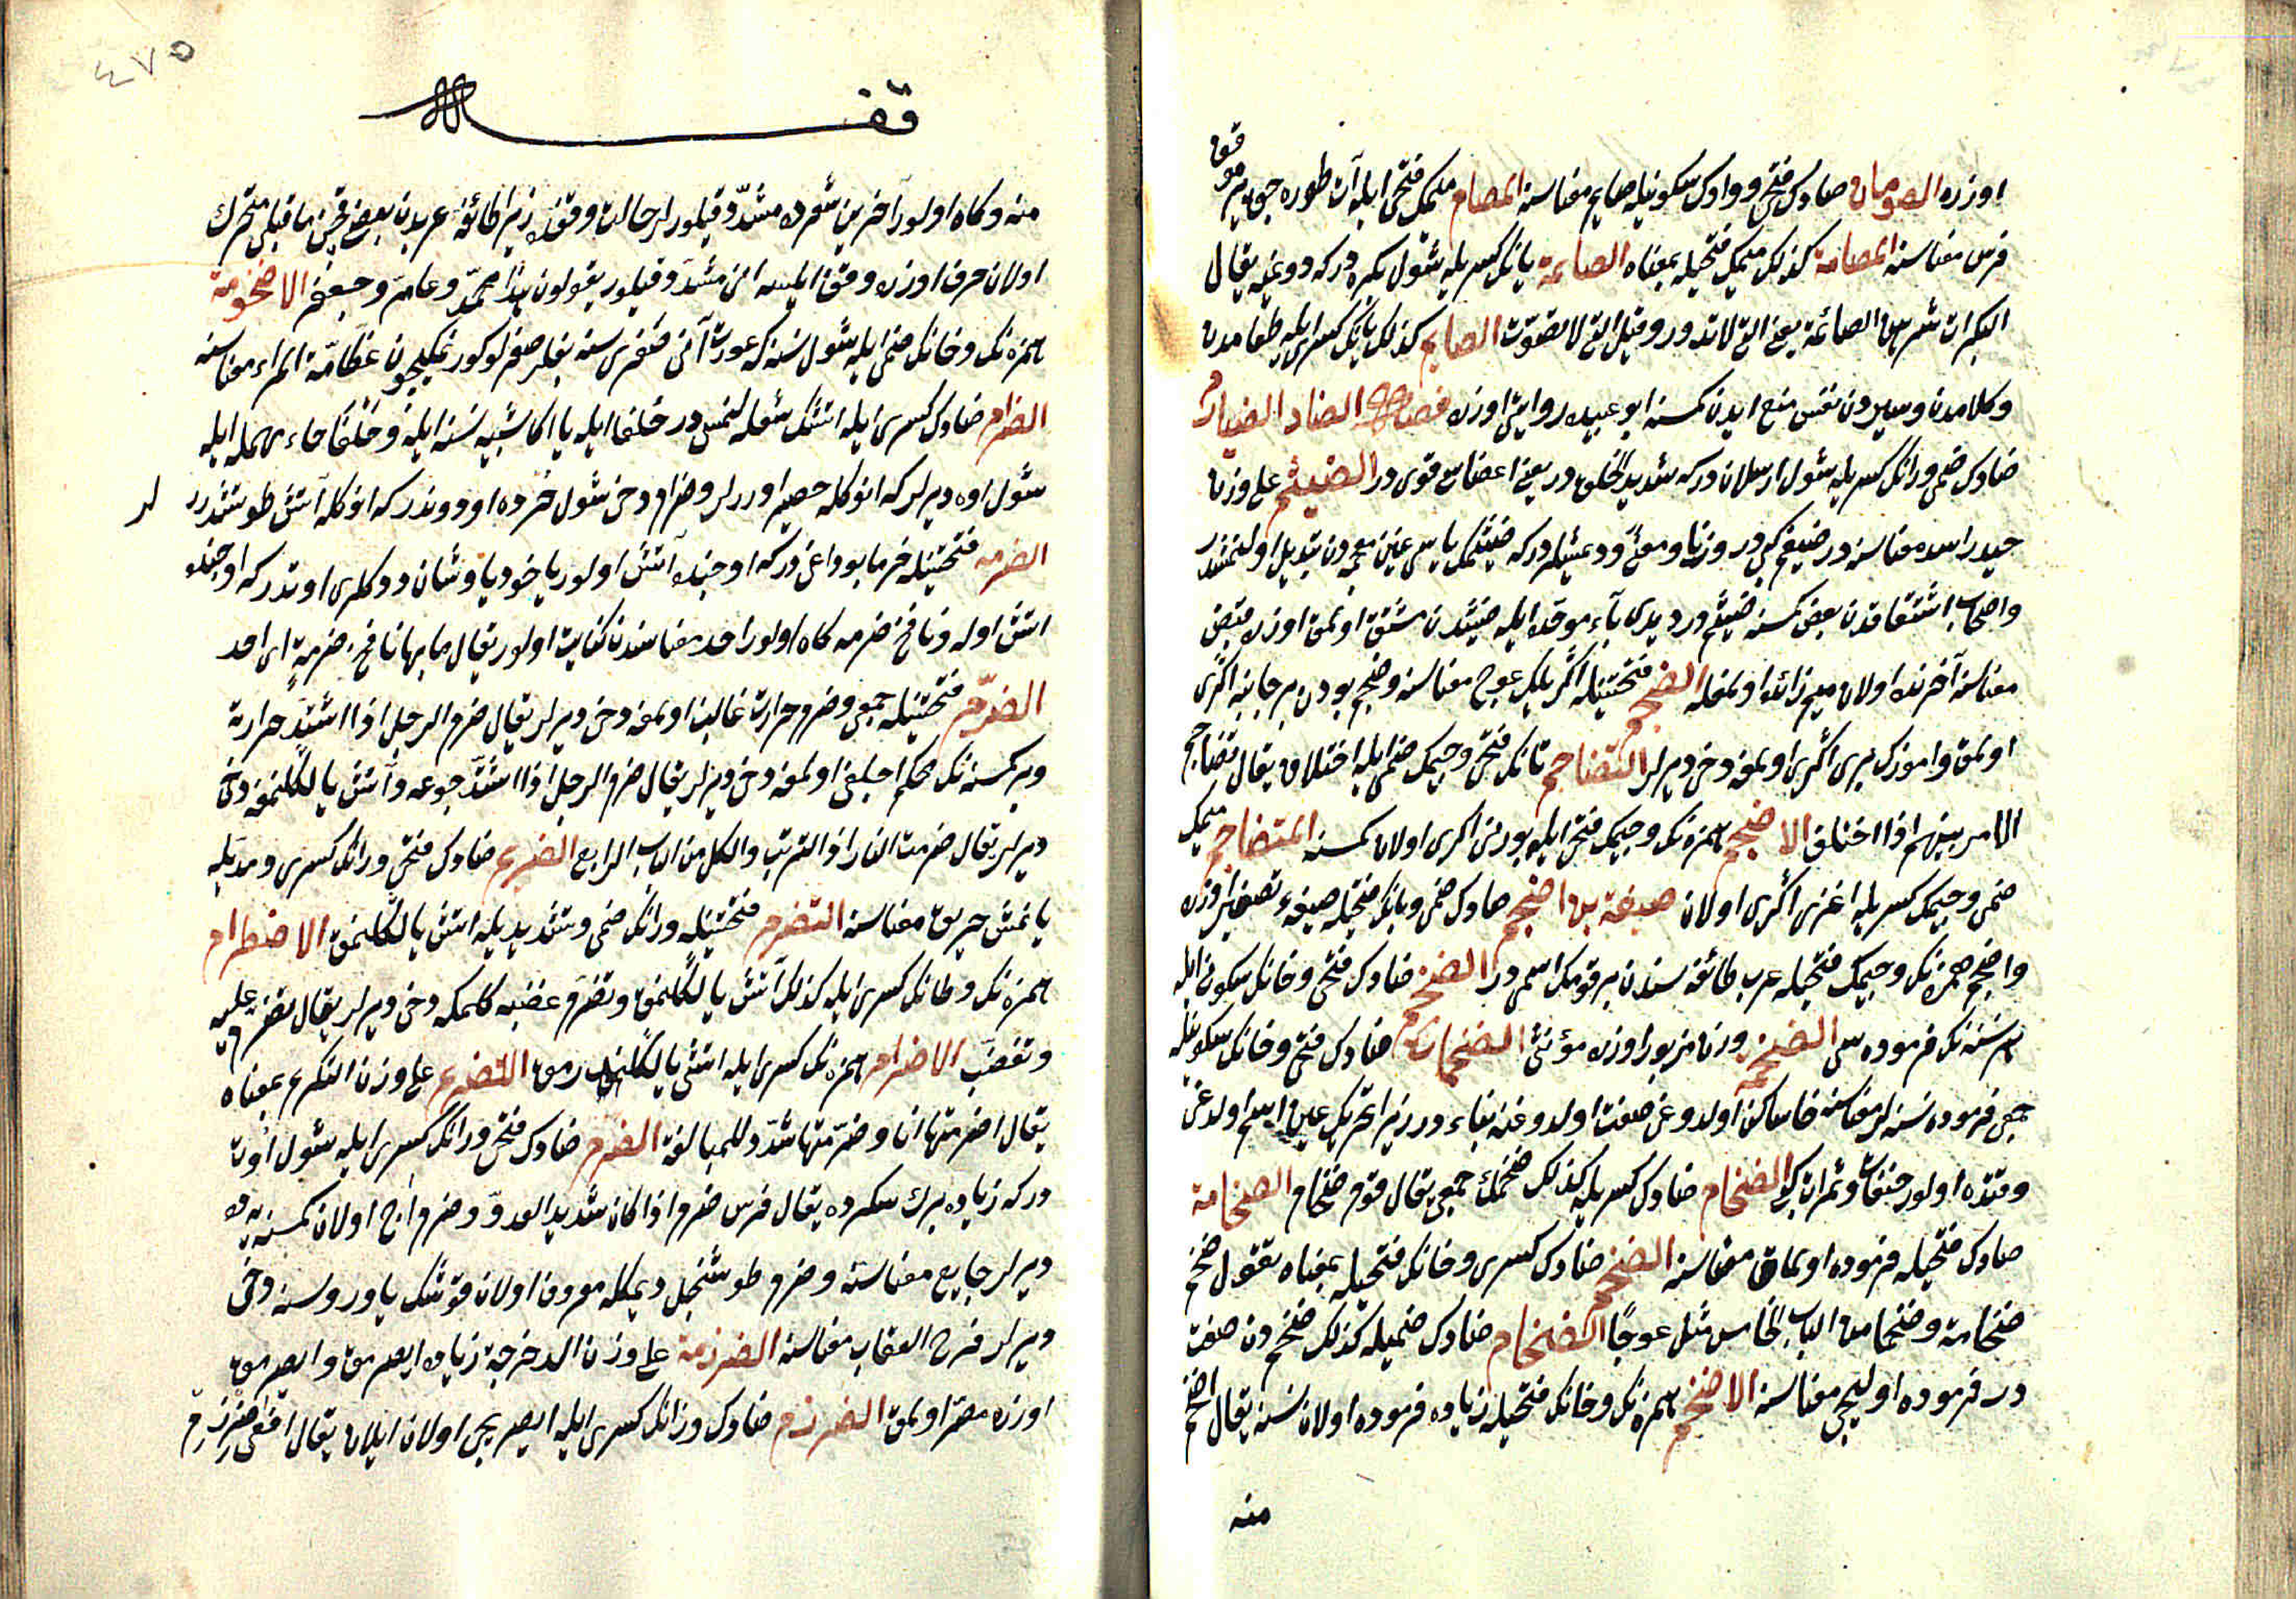 اوزره الصومان صادك فتحى و واوك سكونيله صايم معناسنه المصام ميمك فتحى ايله آت طوره جق ير موقف
فرس معناسنه المصامة كذلك ميمك فتحيله بمعناه الصايمة يانك كسريله شول بكره دركه دونميه يقال
البكرات شرهن الصائمة يعنى التى لا تدور وقيل التى لا الصايم كذلك يانك كسرى ايله طعامدن
وكلامدن وسيردن نفس منع ايدن كمسنه ابو عبيده روايتى اوزره فصل الضاد الضبارم
ضادك ضمى ورانك كسريله شول ارسلان دركه شديد الخلق در يعنى اعضاسى قوى در الضيثم على وزن
حيدر اسد معناسنه در ضيغم كبى در وزنا ومعنى و ديمشلر دركه ضيثمك ياسى غين معجمه دن تبديل اولنمشدر
واصحاب اشتقاقدن بعض كمسنه ضيثم در ديدى باء موحده ايله ضبثدن مشتق اولمق اوزره قبض
معناسنه آخرنده اولان ميم زائد اولمغله الضجم فتحتينله اكريلك عوج معناسنه وضجم بودن بر جانبه اكرى
اولمق واموزك برى اكرى اولمغه دخى ديرلر التضاجم تانك فتحى وجيمك ضمى ايله اختلاف يقال تضاجم
الامر بينهم اذا اختلف الاضجم همزه نك وجيمك فتحى ايله بورنى اكرى اولان كمسنه المتضاجم ميمك
ضمى وجيمك كسريله اغزى اكرى اولان ضبيعة بن اضجم ضادك ضمى وبانك فتحيله صيغهء تصغير اوزره
واضجم همزه نك وجيمك فتحيله عرب طائفه سندن بر قومك اسمى در الضخم ضادك فتحى وخانك سكونى ايله
هر نسنه نك فرموده سى الضخمة وزن مزبور اوزره مؤنثى الضخمات ضادك فتحى وخانك سكونيله
جمعى فرموده نسنه لر معناسنه خا ساكن اولدوغى صفت اولدوغنه بناء در زيرا تحريك عين اسم اولدغى
وقتده اولور جفنات وثمرات كبى الضخام ضادك كسريله كذلك ضخمك جمعى يقال قوم ضخام الضخامة
ضادك فتحيله فرموده اولماق معناسنه الضخم ضادك كسرى وخانك فتحيله بمعناه تقول ضخم
ضخامة وضخما من الباب الخامس مثل عوجا الضخام ضادك ضميله كذلك ضخم دن صفت
در فرموده اوليجى معناسنه الاضخم همزه نك وخانك فتحيله زياده فرموده اولان نسنه يقال اضخم
منه
٤٧٥
منه وكاه اولور آخرين شعرده مشدد قيلورلر حالت وقفده زيرا طائفهء عربدن بعض قچن ما قبلى متحرك
اولان حرف اوزره وقف ايلسه انى مشدد قيلور يقولون هذا محمد وعامر وجعفر الاضخومة
همزه نك وخانك ضمى ايله شول نسنه كه عورت آنى صغرى سنه بغلر صغرلو كورنمكيچون عظامة المراء معناسنه
الضرام ضادك كسرى ايله اتشك شعله لنمسى در خلفا ايله يا اكا شبيه نسنه ايله و حاء مهمله ايله
شول اوه ديرلر كه انوكله حصير اورر لر وضرام دخى شول خرده اودوندر كه انوكله آتش طوتشدرر لر
الضرمه فتحتينله خرما بوداغى دركه اوجنده آتش اولور ياخود ياوشان ددكلرى اوتدر كه اوجنده
اتش اوله ونافخ ضرمه كاه اولور احد معناسندن كنايت اولور يقال ما بها نافخ ضرمة اى احد
الضرم فتحتينله جمعى وضرم حرارت غالب اولمغه دخى ديرلر يقال ضرم الرجل اذا اشتد حرارته
وبر كمسنه نك محكم اجلغى اولمغه دخى ديرلر يقال ضرم الرجل اذا اشتد جوعه وآتش يالكلنمغه دخى
ديرلر يقال ضرمت النار اذا التهبت والكل من الباب الرابع الضريم ضادك فتحى ورانك كسرى ومديله
يانمش حريق معناسنه التضرم فتحتينله ورانك ضمى وتشديديله اتش يالكلنمق الاضطرام
همزه نك وطانك كسرى ايله كذلك آتش يالكلنمق وتضرم غضبه كلمكه دخى ديرلر يقال تضرم عليه
وتغضب الاضرام همزه نك كسرى ايله اتشى يالكلندرمق التضريم على وزن التكريم بمعناه
يقال اضرمتها انا وضرمتها شدد للمبالغة الضرم ضادك فتحى ورانك كسرى ايله شول آت
دركه زياده يرك سكرده يقال فرس ضرم اذا كان شديد العدو وضرم اج اولان كمسنه يه ده
ديرلر جايع معناسنه وضرم طوشنجل ديمكله معروف اولان قوشك ياوروسنه دخى
ديرلر فرخ العقاب معناسنه الضرزمة على وزن الدحرجة زياده ايصرمق وايصرمق
اوزره مصر اولمق الضرزم ضادك وزانك كسرى ايله ايصريجى اولان ايلان يقال افعى ضرزم